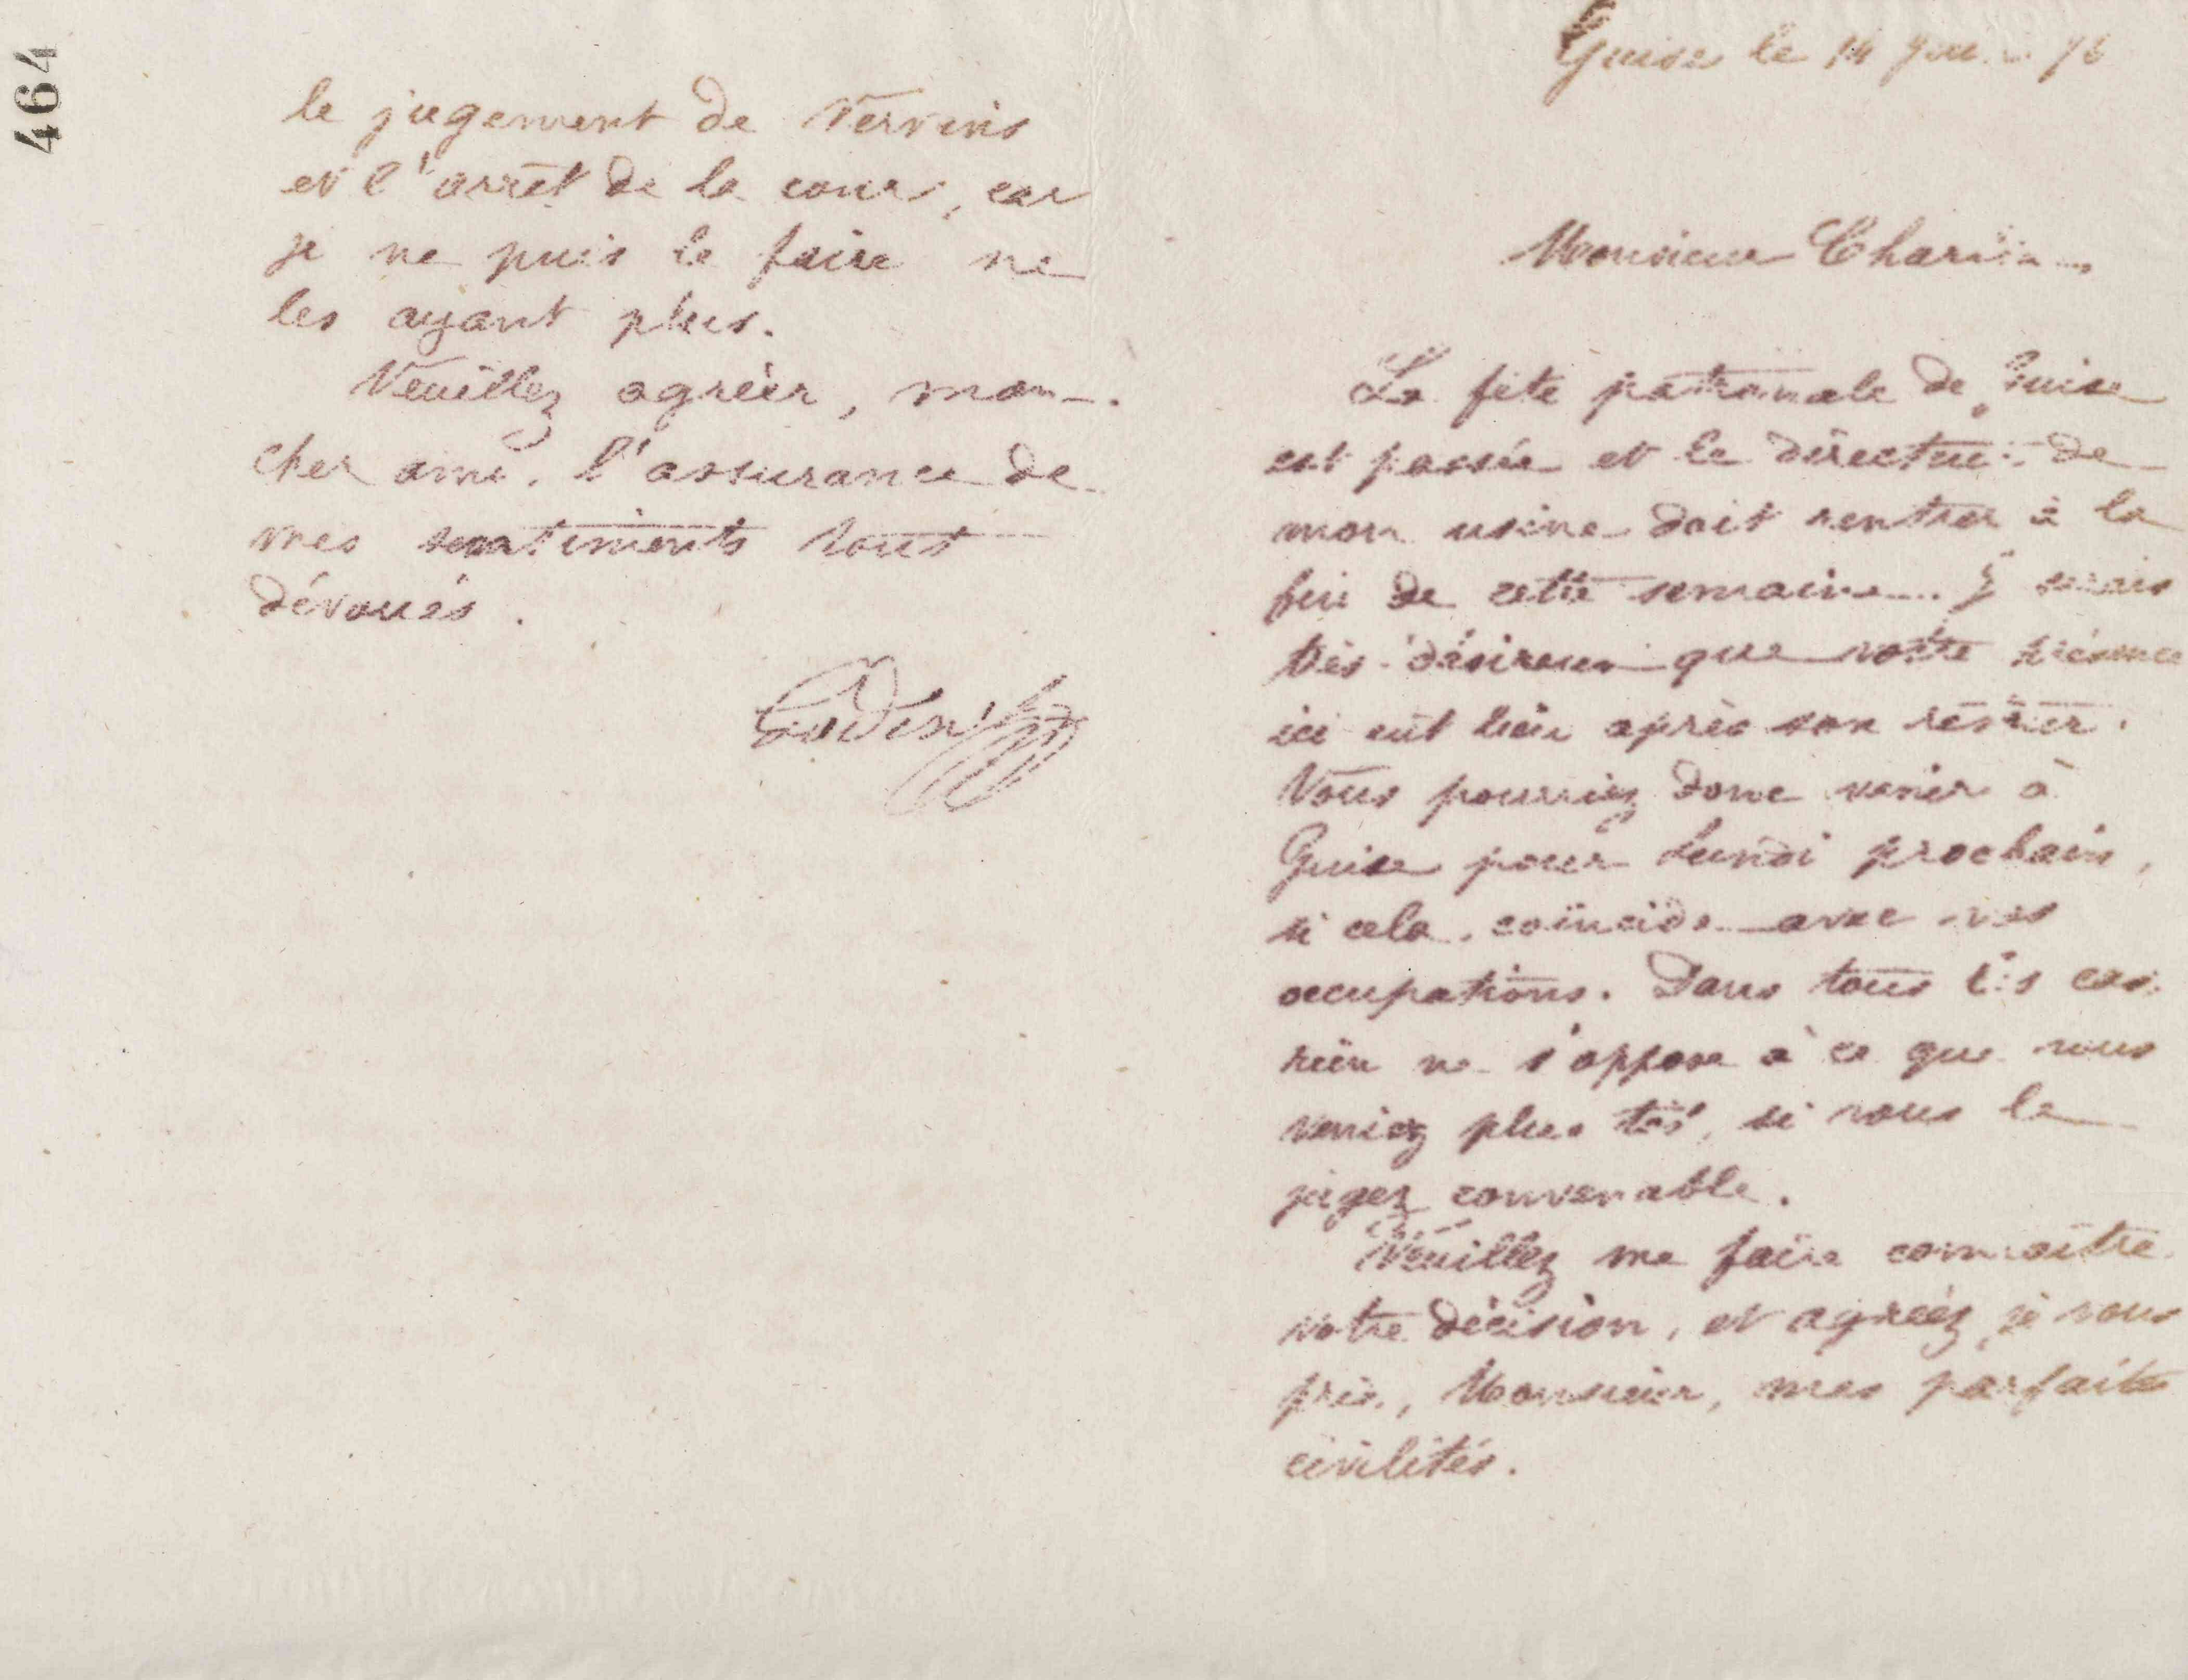 464
le jugement de Vervins
et l'arrêt de la cour, car
je ne puis le faire ne
les ayant plus.
Veuillez agréer, mon
cher ami, l'assurance de
mes sentiments tout
dévoués.
Godin
Guise le 14 76
Monsieur
La fête patronale de Guise
est passée et le directeur de
mon usine doit rentrer à la
fin de cette semaine. Je serais
très désireux que votre présence
ici eut lieu après son retour.
Vous pourriez donc venir à
Guise pour Lundi prochain,
si cela coïncide avec vos
occupations. Dans tous les cas
rien ne s'oppose à ce que vous
veniez plus tôt, si vous le
jugez convenable.
Veuillez me faire connaître
votre décision, et agréez je vous
prie, Monsieur, mes parfaites
civilités.